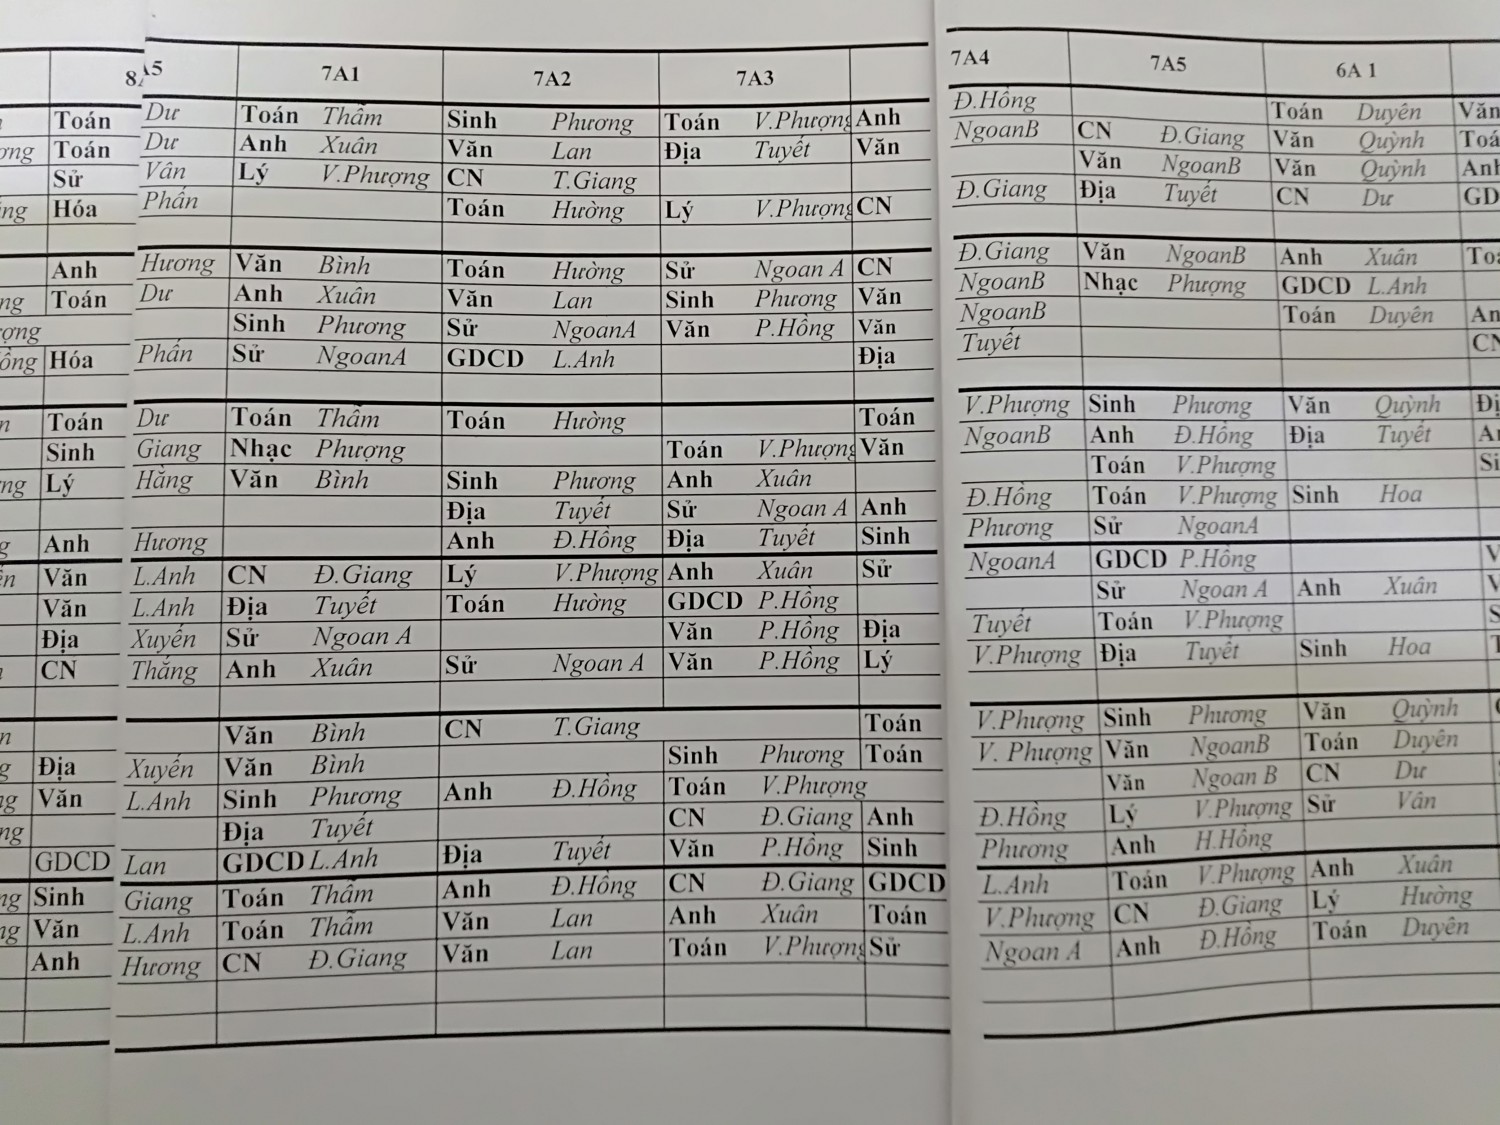 8A A5 7A1 7A2 7A3 7A4 7A5 6A 1
Toán Dư Toán Thẫm Sinh Phương Toán V.Phượng Anh Đ.Hồng Toán Duyên Văn
ơng Toán Dư Anh Xuân Văn Lan Địa Tuyết Văn NgoanB CN Đ.Giang Văn Quỳnh Toá
Sử Vân Lý V.Phượng CN T.Giang Văn NgoanB Văn Quỳnh Anh
ng Hóa Phấn Toán Hường Lý V.Phượng CN Đ.Giang Địa Tuyết CN Dư GD
Anh Hương Văn Bình Toán Hường Sử Ngoan A CN Đ.Giang Văn NgoanB Anh Xuân Toá
ng Toán Dư Anh Xuân Văn Lan Sinh Phương Văn NgoanB Nhạc Phượng GDCD L.Anh
ượng Sinh Phương Sử NgoanA Văn P.Hồng Văn NgoanB Toán Duyên An
ồng Hóa Phấn Sử NgoanA GDCD L.Anh Địa Tuyết CN
Toán Dư Toán Thẫm Toán Hường Toán V.Phượng Sinh Phương Văn Quỳnh Đị
Sinh Giang Nhạc Phượng Toán V.Phượng Văn NgoanB Anh Đ.Hồng Địa Tuyết An
ng Lý Hằng Văn Bình Sinh Phương Anh Xuân Toán V.Phượng Si
Địa Tuyết Sử Ngoan A Anh Đ.Hồng Toán V.Phượng Sinh Hoa
Anh Hương Anh Đ.Hồng Địa Tuyết Sinh Phương Sử NgoanA
Văn L.Anh CN Đ.Giang Lý V.Phượng Anh Xuân Sử NgoanA GDCD P.Hồng V
Văn L.Anh Địa Tuyết Toán Hường GDCD P.Hồng Sử Ngoan A Anh Xuân V
Địa Xuyến Sử Ngoan A Văn P.Hồng Địa Tuyết Toán V.Phượng S
CN Thắng Anh Xuân Sử Ngoan A Văn P.Hồng Lý V.Phượng Địa Tuyết Sinh Hoa T
Văn Bình CN T.Giang Toán V.Phượng Sinh Phương Văn Quỳnh
Địa Xuyến Văn Bình Sinh Phương Toán V. Phượng Văn NgoanB Toán Duyên
ng Văn L.Anh Sinh Phương Anh Đ.Hồng Toán V.Phượng Văn Ngoan B CN Dư
ng Địa Tuyết CN Đ.Giang Anh Đ.Hồng Lý V.Phượng Sử Vân
GDCD Lan GDCD L.Anh Địa Tuyết Văn P.Hồng Sinh Phương Anh H.Hồng
ng Sinh Giang Toán Thẫm Anh Đ.Hồng CN Đ.Giang GDCD L.Anh Toán V.Phượng Anh Xuân
ng Văn L.Anh Toán Thẫm Văn Lan Anh Xuân Toán V.Phượng CN Đ.Giang Lý Hường
Anh Hương CN Đ.Giang Văn Lan Toán V.Phượng Sử Ngoan A Anh Đ.Hồng Toán Duyên